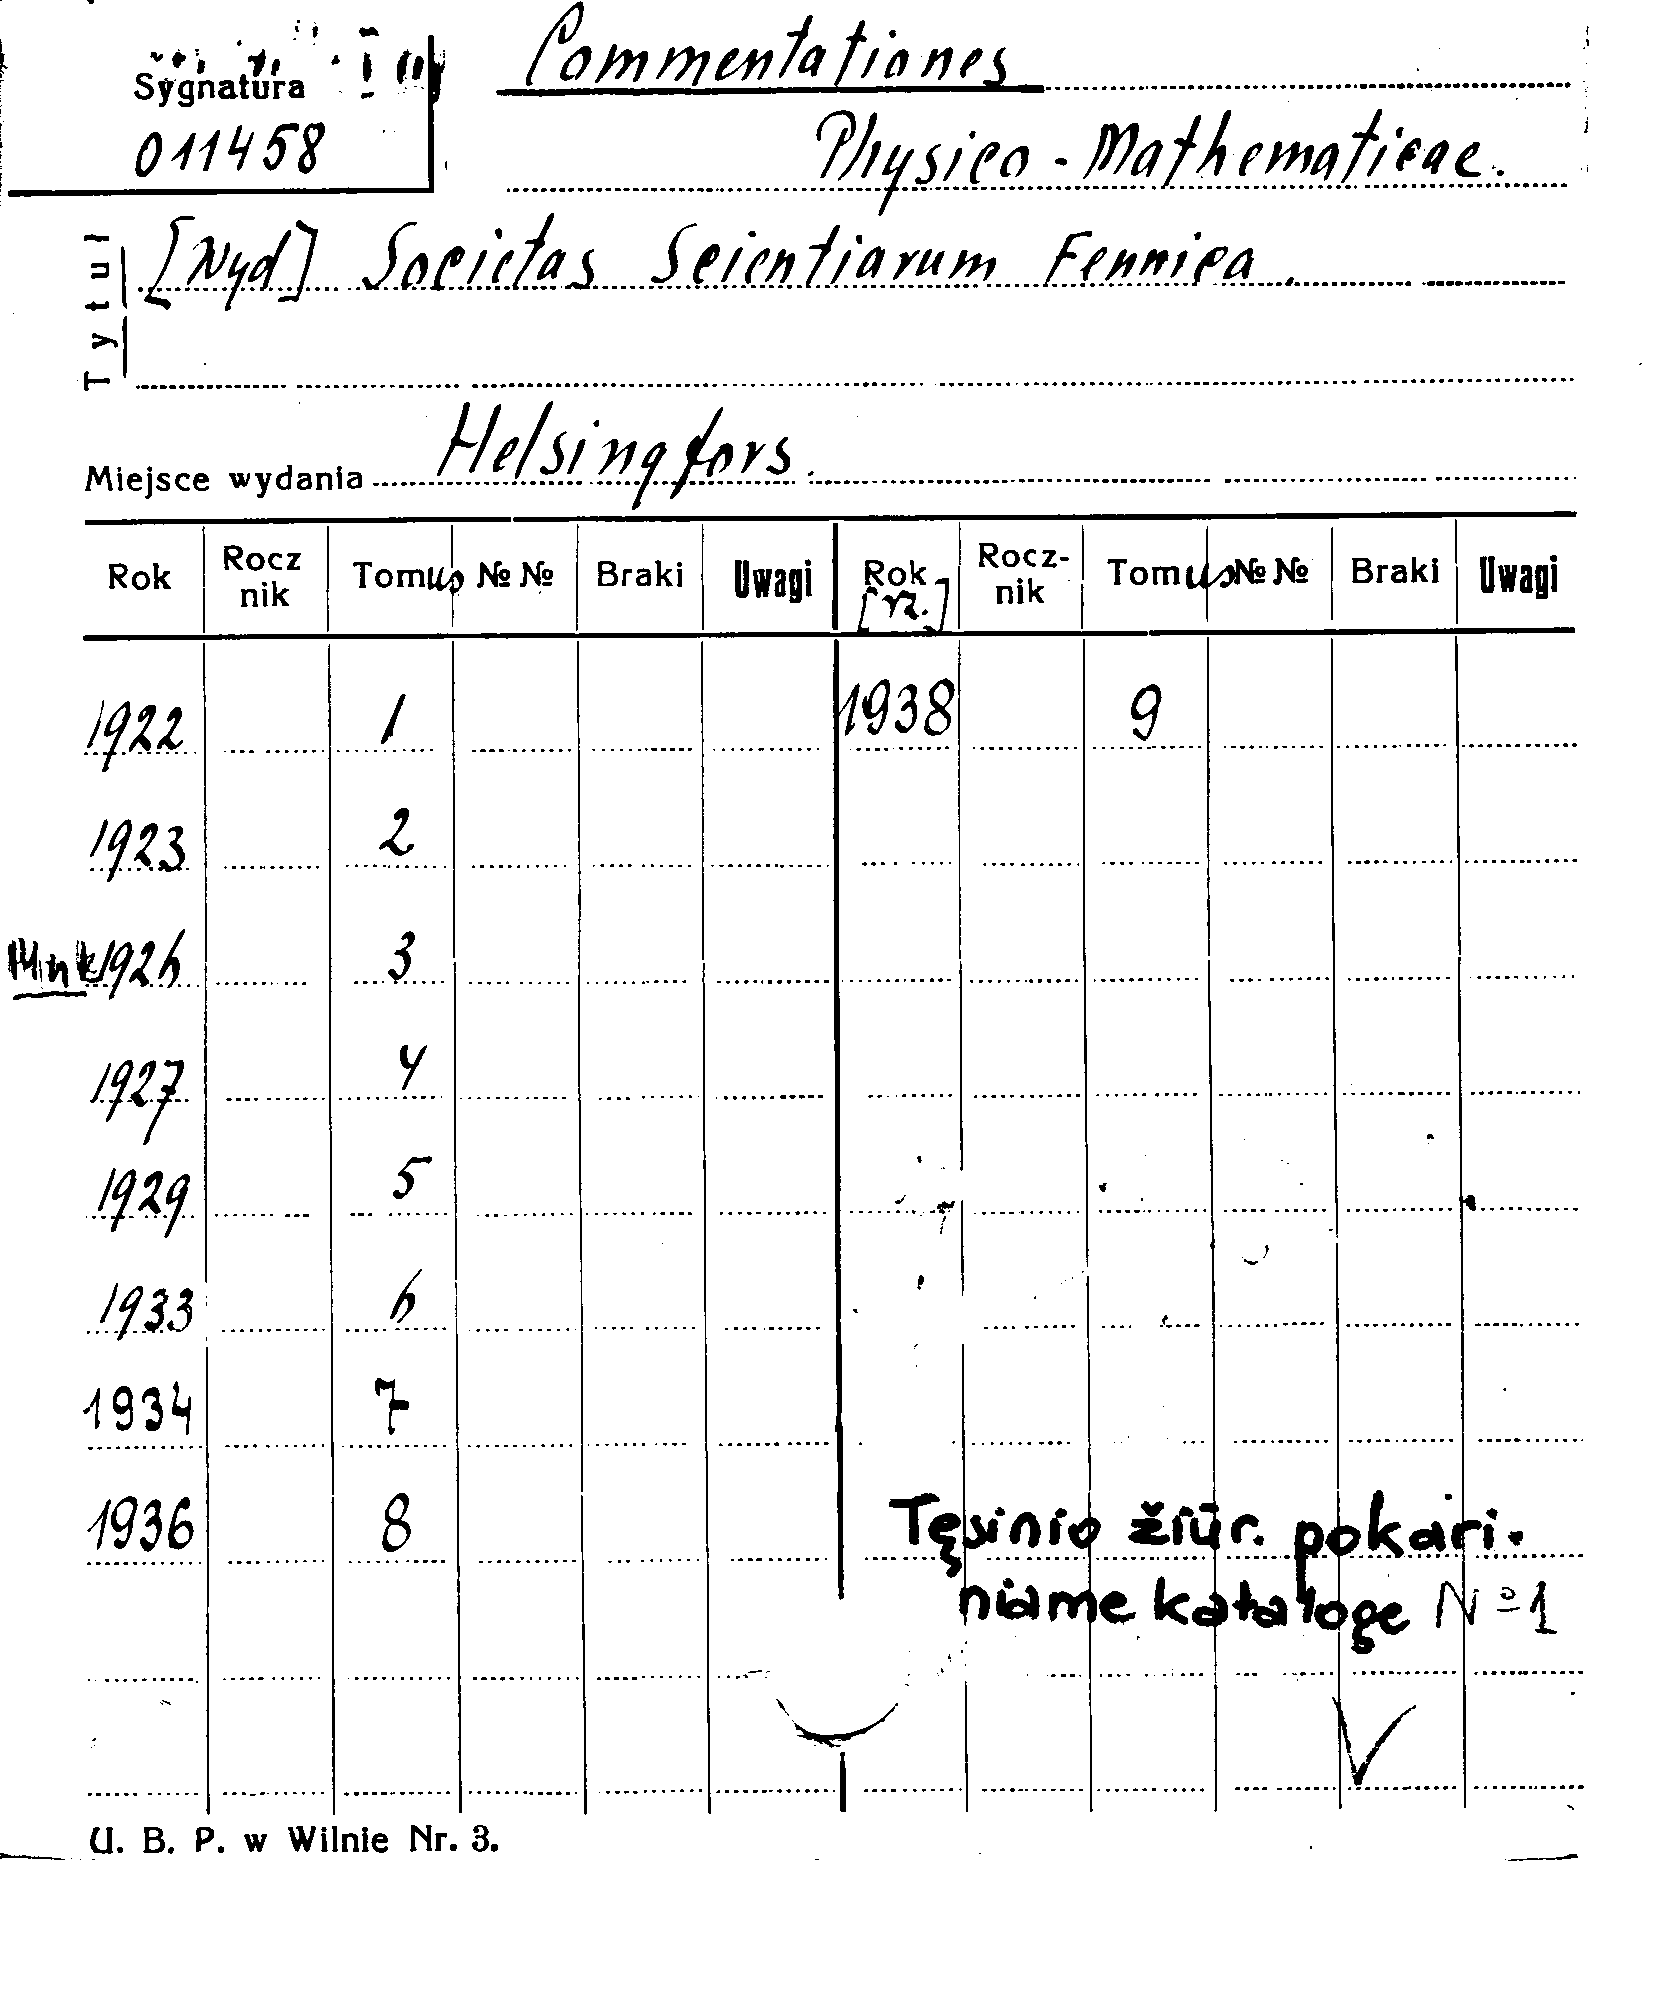 Sygnatura
011458
Commentationes
Physico - Mathematicae.
Tytuł
[Wyd] Societas Scientiarum Fennica.
Miejsce wydania Helsingfors.
Rok Rocznik Tomus №№ Braki Uwagi Rok [rz.] Rocz-nik Tomus №№ Braki Uwagi
1922 1 1938 9
1923 2
1926 3
1927 4
1929 5
1933 6
1934 7
1936 8
Tęsinio žiūr. pokari.
niame kataloge № 1
U. B. P. w Wilnie Nr. 3.